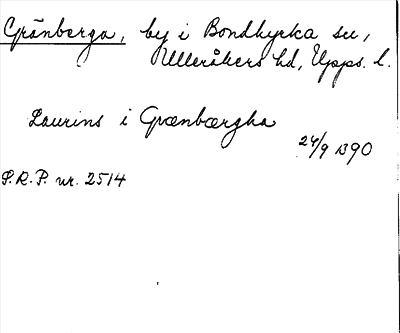 Gränberga, by i Bondkyrka sn,
Ulleråkers hd, Upps. l.
Laurins i Grænbærgha
24/9 1390
S.R.P. nr. 2514